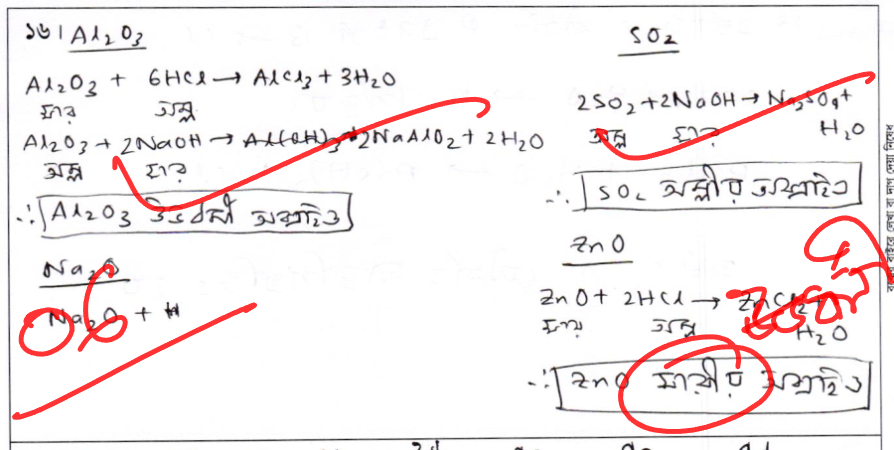 ১৬। Al₂O₃
Al₂O₃ + 6HCl → AlCl₃ + 3H₂O
ক্ষার অম্ল
Al₂O₃ + 2NaOH → Al(OH)₃ + 2NaAlO₂ + 2H₂O
অম্ল ক্ষার
∴ Al₂O₃ উভধর্মী অক্সাইড
Na₂O
Na₂O + H
০৬
SO₂
2SO₂ + 2NaOH → Na₂SO₄ +
H₂O
অম্ল ক্ষার
∴ SO₂ অম্লীয় অক্সাইড
ZnO
ZnO + 2HCl → ZnCl₂ +
H₂O
ক্ষার অম্ল
∴ ZnO ক্ষারীয় অক্সাইড